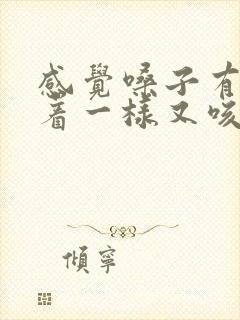 感覺嗓子有
着一樣又咳
傾寧